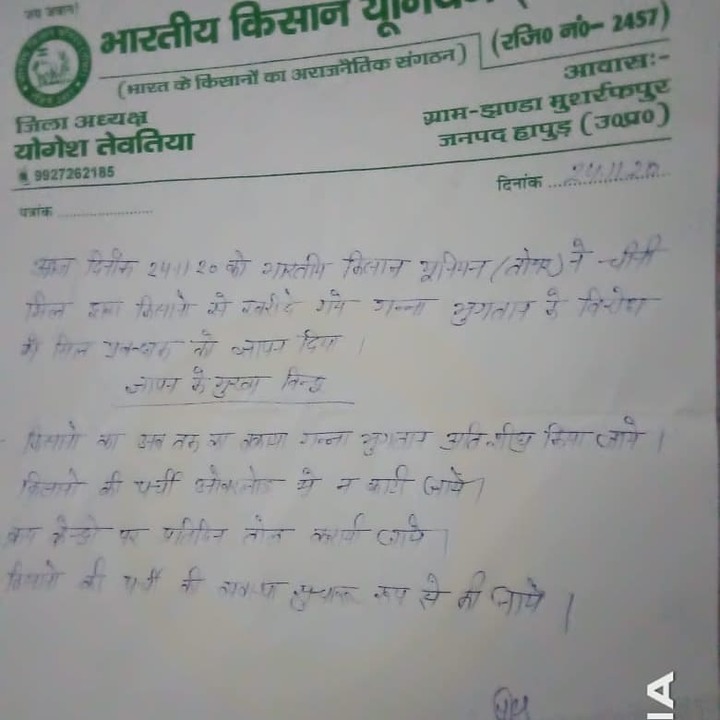 जय जवान!
भारतीय किसान यूनियन
(भारत के किसानों का अराजनैतिक संगठन)
(रजि० नं०- 2457)
जिला अध्यक्ष
योगेश तेवतिया
9927262185
आवासः-
ग्राम-झण्डा मुशर्रफपुर
जनपद हापुड़ (उ०प्र०)
पत्रांक ........................
दिनांक ...24.11.20...
आज दिनांक 24.11.20 को भारतीय किसान यूनियन (तोमर) ने चीनी
मिल द्वारा किसानो से खरीदे गये गन्ना भुगतान के विरोध
की मिल प्रबन्धक को ज्ञापन दिया ।
ज्ञापन के मुख्य बिन्दु
किसानो का अब तक का बकाया गन्ना भुगतान अति शीघ्र किया जाये ।
किसानो की पर्ची ओवरलोड मे न काटी जाये ।
क्रय केन्द्रो पर प्रतिदिन तोल करायी जाये ।
किसानो की पर्ची की व्यवस्था सुचारू रूप से की जाये ।